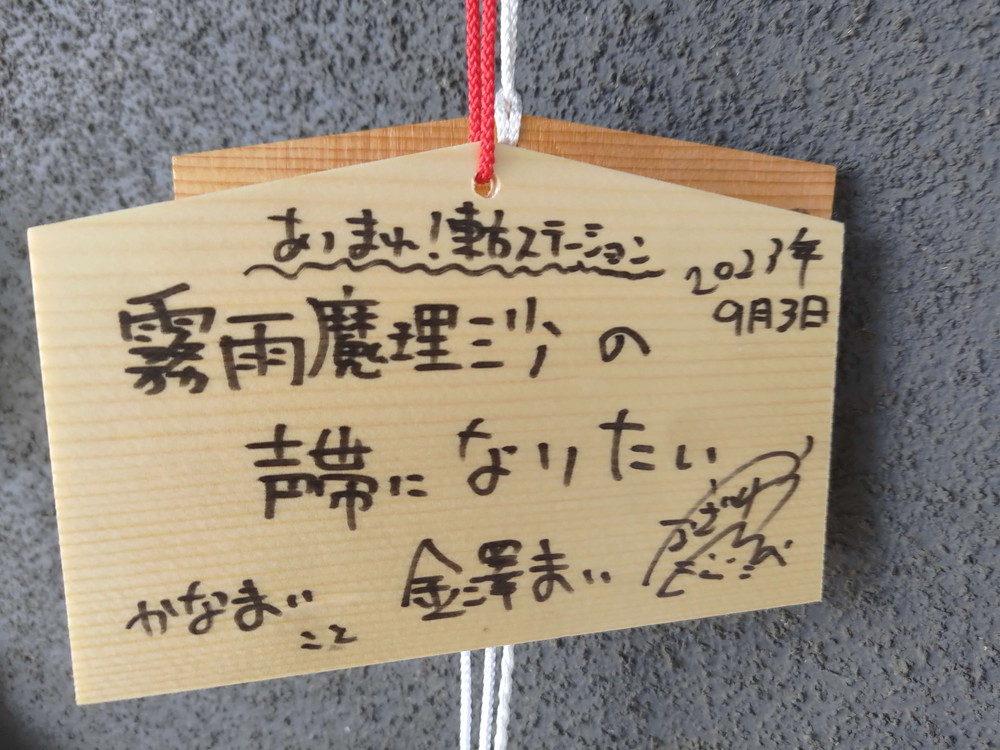 あつまれ!東方ステーション
2023年
9月3日
霧雨魔理沙の
声帯になりたい
かなまい
こと
金澤まい